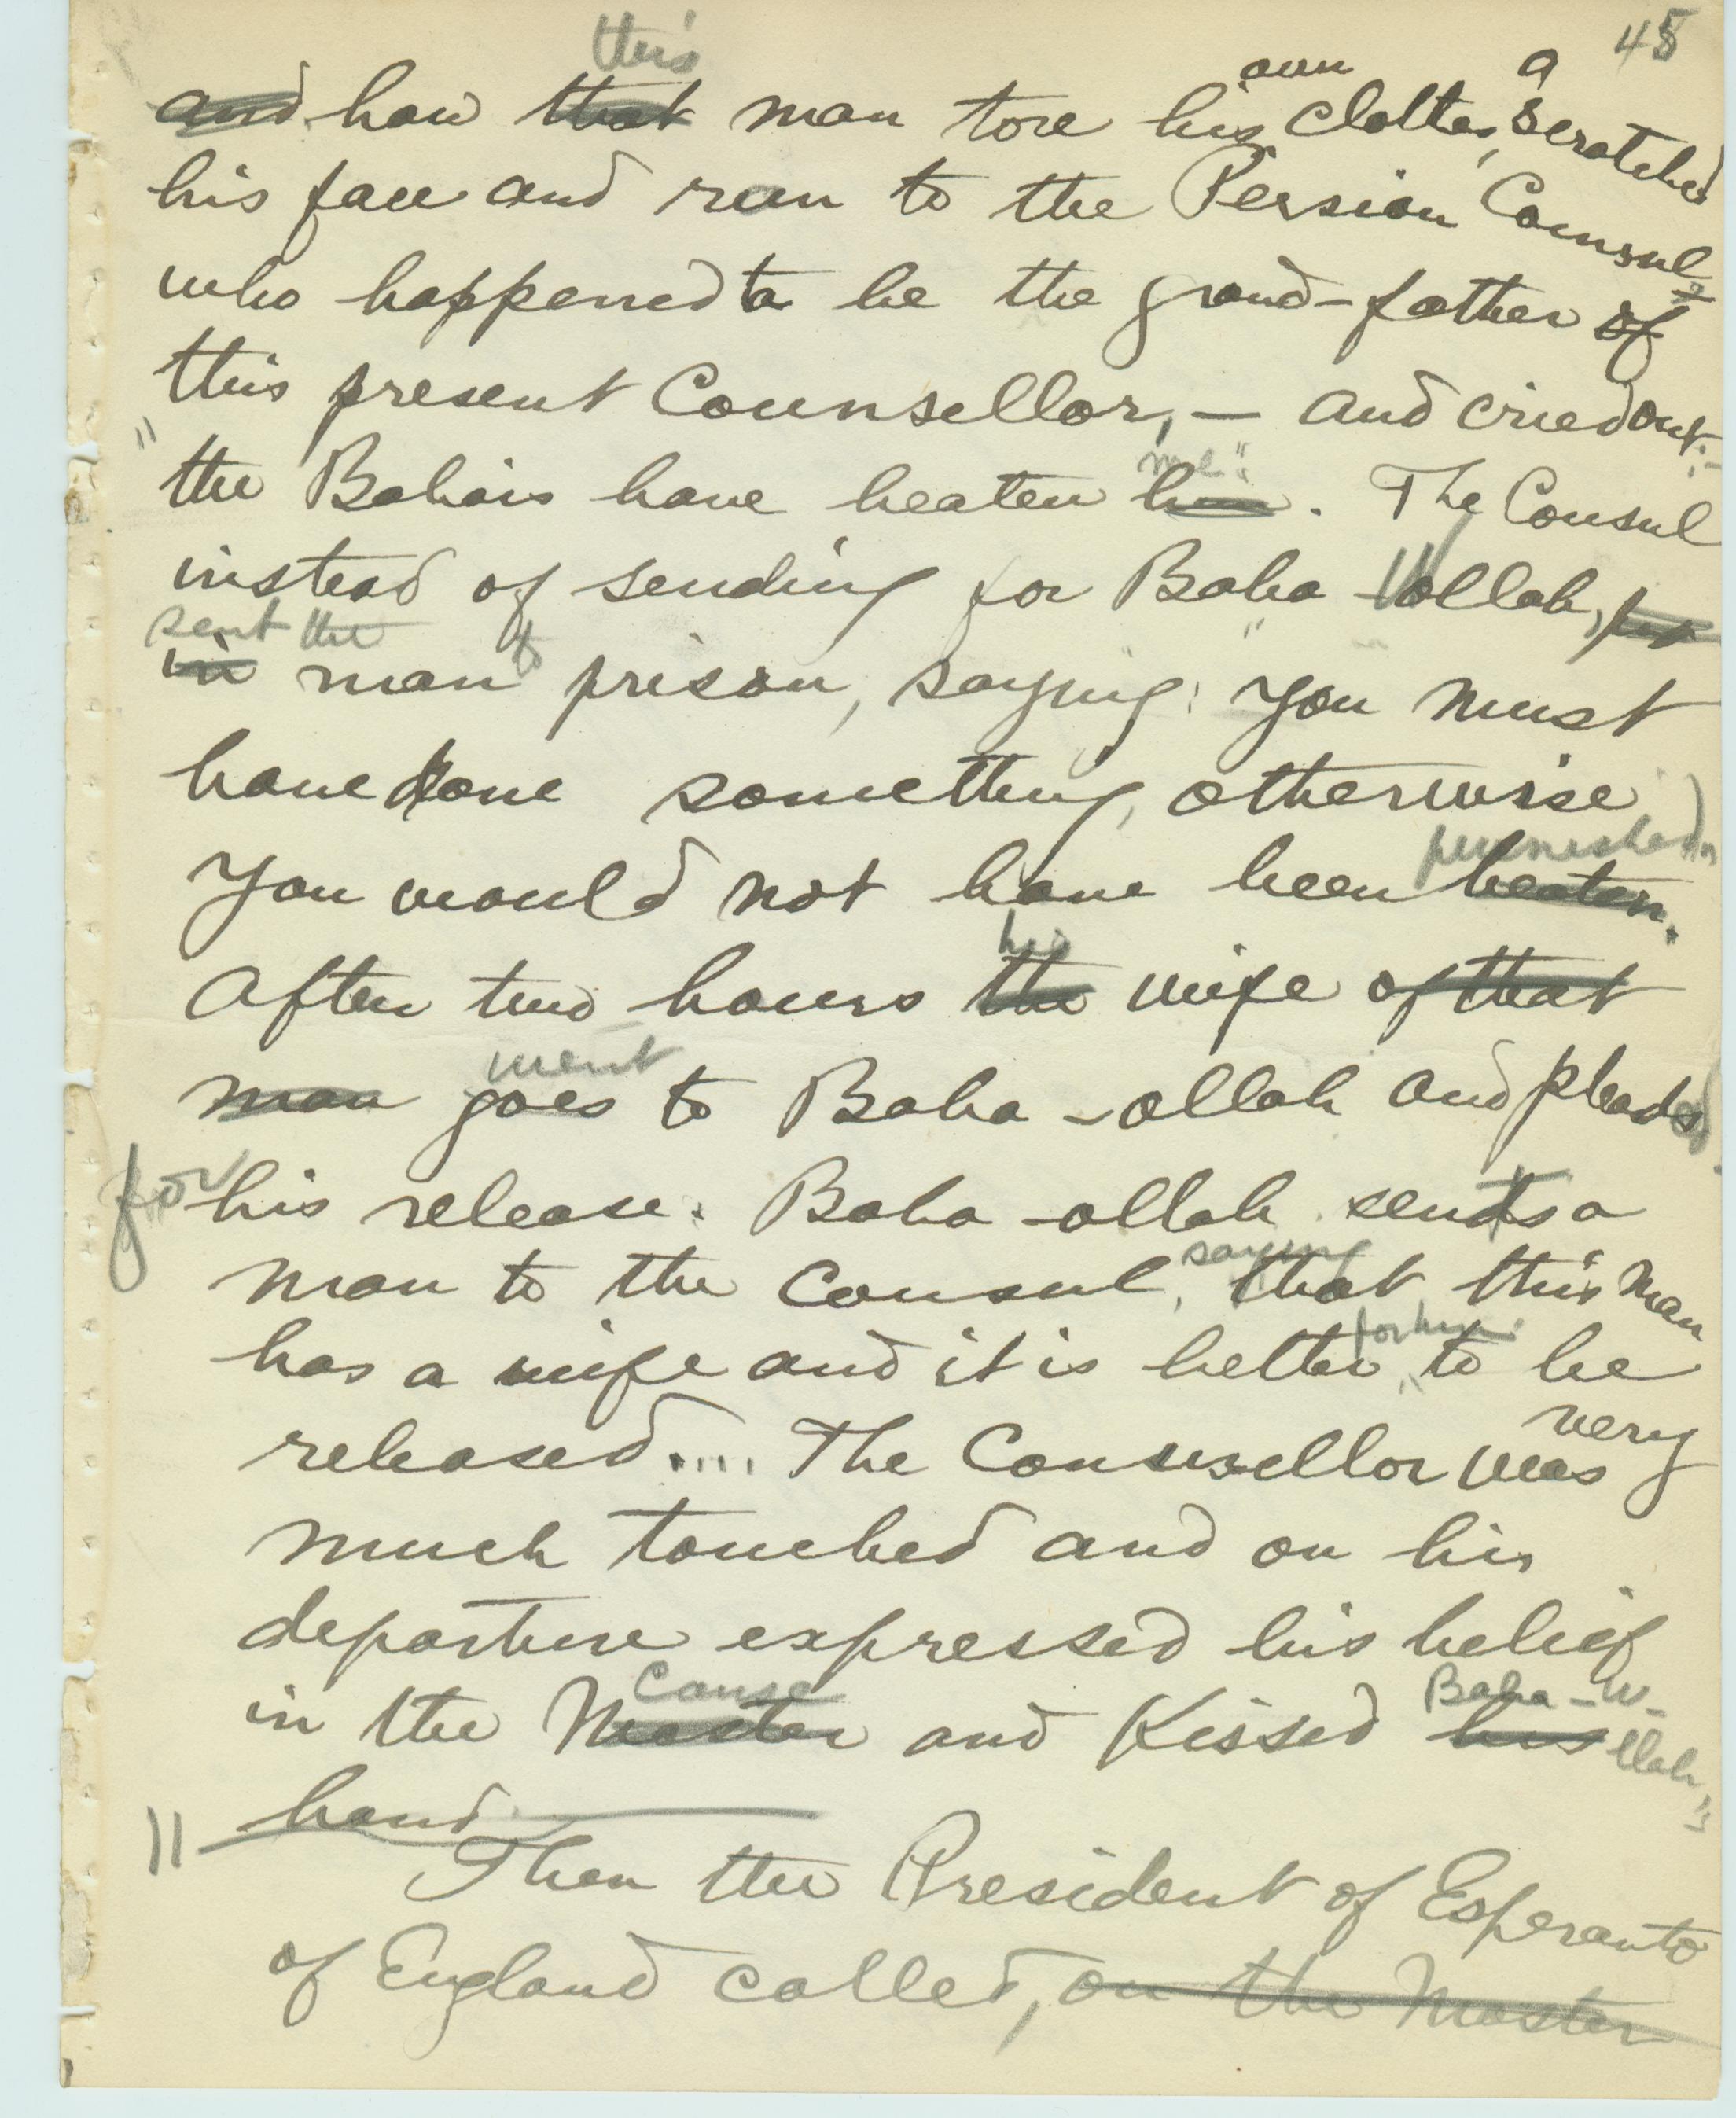 45
this own a
and how that man tore his clothes, scratched
his face and ran to the Persian Consul
who happened to be the grand-father of
this present Counsellor, — and cried out:-
me"
"the Bahais have beaten him. The Consul
instead of sending for Baha Ullah, put
sent the to
in man prison, saying: "You must
have done something, otherwise
punished."
you would not have been beaten.
his
After two hours the wife of that
went
man goes to Baha-ollah and pleaded
for his release. Baha-ollah sent a
saying
man to the Consul, that this man
for him
has a wife and it is better, to be
very
released.... The Counsellor was
much touched and on his
departure expressed his belief
Cause Baha-u-
in the Master and kissed his
llah's
hand.
Then the President of Esperanto
of England called, on the Master